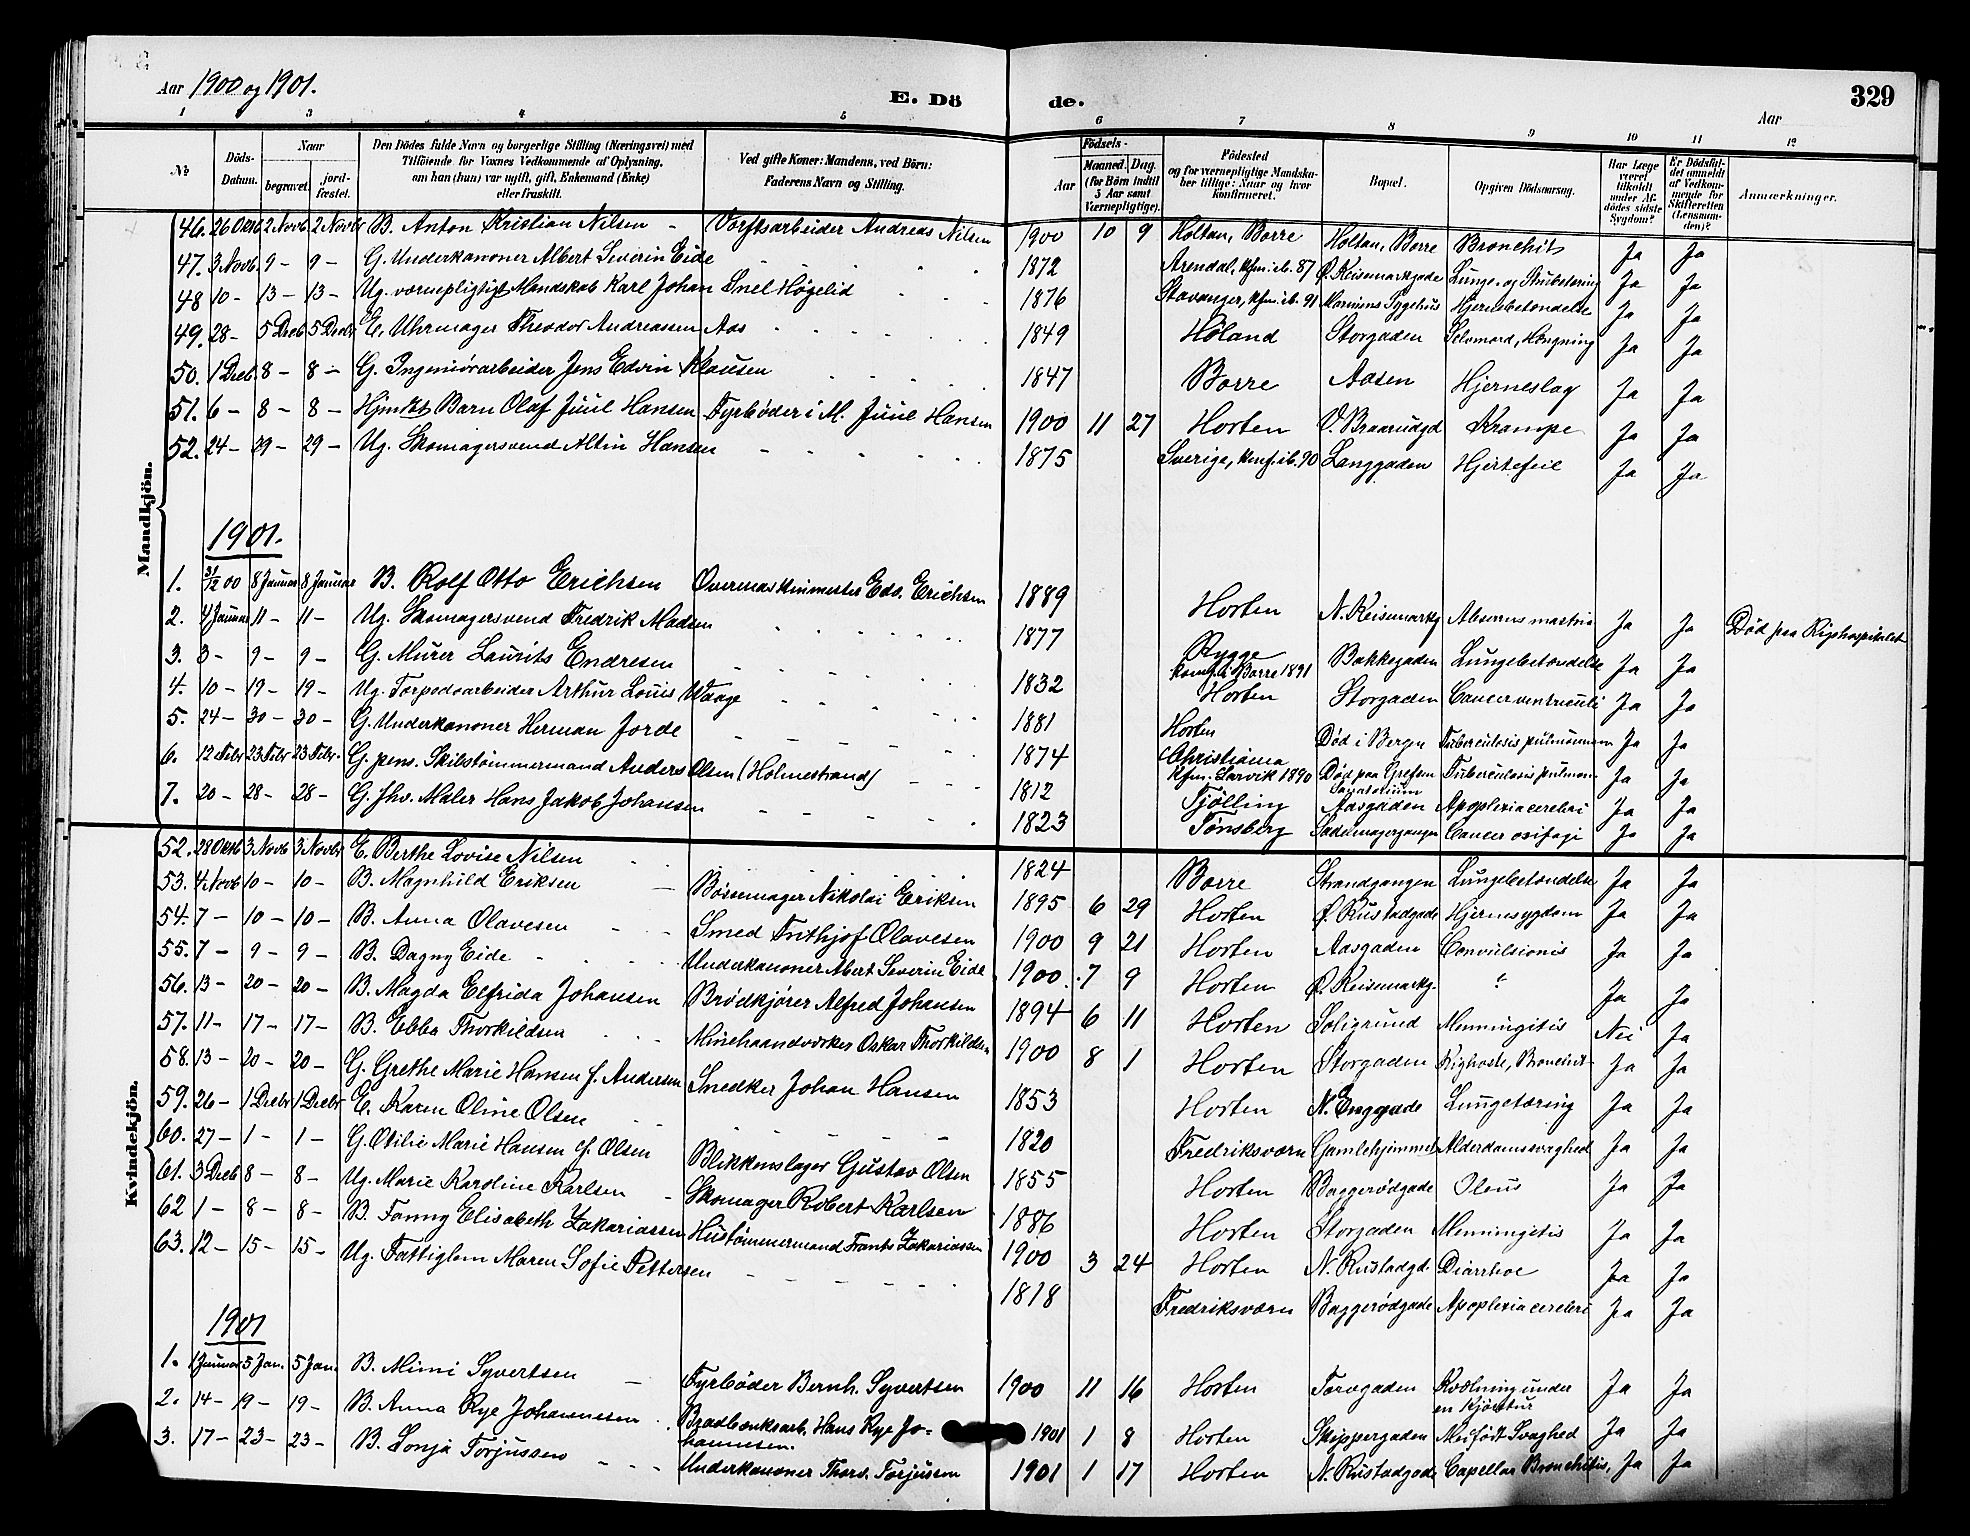 Aar 1900 og 1901.
E. Dö de.
Aar
329
1 3 4 5 6 7 8 9 10 11 12
No
Döds-Datum.
Naar
begravet.
jord-fæstet.
Den Dödes fulde Navn og borgerlige Stilling (Næringsvei) med Tilföiende for Voxnes Vedkommende af Oplysning, om han (hun) var ugift, gift, Enkemand (Enke) eller fraskilt.
Ved gifte Koner: Mandens, ved Börn: Faderens Navn og Stilling.
Födsels-
Aar
Maaned. Dag. (for Börn indtil 5 Aar samt Værnepligtige).
Födested og for værnepligtige Mandska-ber tillige: Naar og hvor konfirmeret.
Bopæl.
Opgiven Dödsaarsag.
Har Læge været tilkaldt under Af-dödes sidste Sygdom?
Er Dödsfal-det anmeldt af Vedkom-mende for Skifteretten (Lensman-den)?
Anmærkninger.
Mandkjön.
46. 26 Oktb 2 Novb 2 Novb B. Anton Kristian Nilsen - Værftsarbeider Andreas Nilsen 1900 10 9 Holtan, Borre Holtan, Borre Bronchit Ja Ja
47. 3 Novb. 9 - 9 - G. Underkanoner Albert Severin Eide 1872 Arendal, kfm. ib. 87 Ø. Keisemarkgade Lunge- og Strubetæring Ja Ja
48 10 - 13 - 13 - Ug. værnepligtigt Mandskab Karl Johan Snel Høgelid 1876 Stavanger, kfm. ib. 91 Marinens Sygehus Hjernebetændelse Ja Ja
49. 28 - 5 Decb 5 Decb E. Uhrmager Theodor Andreassen Aas 1849 Høland Storgaden Selvmord, Hængning Ja Ja
50. 1 Decb. 8 - 8 - G. Ingeniørarbeider Jens Edvin Klausen 1847 Borre Aasen Hjerneslag Ja Ja
51. 6 - 8 - 8 - Hjmdt Barn Olaf Juul Hansen Fyrbøder i M. Juul Hansen 1900 11 27 Horten V. Braarudgd Krampe Ja Ja
52. 24 - 29 - 29 - Ug. Skomagersvend Altin Hansen 1875 Sverige, konf. ib. 90 Langgaden Hjertefeil Ja Ja
1901.
1. 31/12 00 8 Januar 8 Januar B. Rolf Otto Erichsen Overmaskinmester Edv. Erichsen 1889 Horten N. Keisemarkg Ja Ja Død paa Righospitalet
2. 4 Januar 11 - 11 - Ug. Skomagersvend Fredrik Madsen 1877 Rygge konf. i Borre 1891 Bakkegaden Lungebetændelse Ja Ja
3. 3 - 9 - 9 - G. Murer Laurits Endresen 1832 Horten Storgaden Cancer ventriculi Ja Ja
4. 10 - 19 - 19 - Ug. Torpedoarbeider Arthur Louis Waage 1881 Horten Død i Bergen Tuberculosis pulmonum Ja Ja
5. 24 - 30 - 30 - G. Underkanoner Herman Jorde 1874 Christiania Kfm. Larvik 1890 Død paa Grefsen Sanatorium Tuberculosis pulmon. Ja Ja
6. 12 Febr 23 Febr 23 Febr. G. pens. Skibstømmermand Anders Olsen (Holmestrand) 1812 Tjølling Aasgaden Apoplexia cerebri Ja Ja
7. 20 - 28 - 28 - G. fhv. Maler Hans Jakob Johansen 1823 Tønsberg Sadelmagergangen Cancer osifagi Ja Ja
Kvindekjön.
52. 28 Oktb 3 Novb 3 Novbr E. Berthe Lovise Nilsen 1824 Borre Strandgangen Lungebetændelse Ja Ja
53. 4 Novb 10 - 10 - B. Magnhild Eriksen - Børsemager Nikolai Eriksen 1895 6 29 Horten Ø. Rustadgade Hjernesygdom Ja Ja
54. 7 - 10 - 10 - B. Anna Olavesen Smed Frithjof Olavesen 1900 9 21 Horten Aasgaden Convulsionis Ja Ja
55. 7 - 9 - 9 - B. Dagny Eide Underkanoner Abert Severin Eide 1900 7 9 Horten Ø. Keisemarkg. ? Ja Ja
56. 13 - 20 - 20 - B. Magda Elfrida Johansen Brødkjører Alfred Johansen 1894 6 11 Horten Soligrund Menningitis Nei Ja
57. 11 - 17 - 17 - B. Ebba Thorkildsen Minehaandværker Oskar Thorkildsen 1900 8 1 Horten Storgaden Kighoste, Broncint. Ja Ja
58. 13 - 20 - 20 - G. Grethe Marie Hansen f. Andersen Snedker Johan Hansen 1853 Horten N. Enggade Lungetæring Ja Ja
59. 26 - 1 Decbr 1 Decbr E. Karen Oline Olsen 1820 Fredriksværn Gamlehjemmet Alderdomssvaghed Ja Ja
60. 27 - 1 - 1 - G. Otilie Marie Hansen f. Olsen Blikkenslager Gustav Olsen 1855 Horten Baggerødgade Oleus Ja Ja
61. 3 Decb 8 - 8 - Ug. Marie Karoline Karlsen - Skomager Robert Karlsen 1886 Horten Storgaden Menningitis Ja Ja
62 1 - 8 - 8 - B. Fanny Elisabeth Zakariassen Hustømmermand Frants Zakariassen 1900 3 24 Horten N. Rustadgd. Diarrhoe Ja Ja
63. 12 - 15 - 15 - Ug. Fattiglem Maren Sofie Pettersen 1818 Fredriksværn Baggerødgade Apoplexia cerebri Ja Ja
1901
1. 1 Januar 5 Jan. 5 Jan. B. Mimi Syvertsen - Fyrbøder Bernh. Syvertsen 1900 11 16 Horten Torvgaden Kvælning under en Kjøretur Ja Ja
2. 14 - 19 - 19 - B. Anna Rye Johannesen Bradbænksarb. Hans Rye Jo-hannesen. 1901 1 8 Horten Skippergaden Medfødt Svaghed Ja Ja
3. 17 - 23 - 23 - B. Sonja Torjussen - - - Underkanoner Thorv. Torjussen 1901 1 17 Horten N. Rustadgade Capellar Bronchitis, Ja Ja